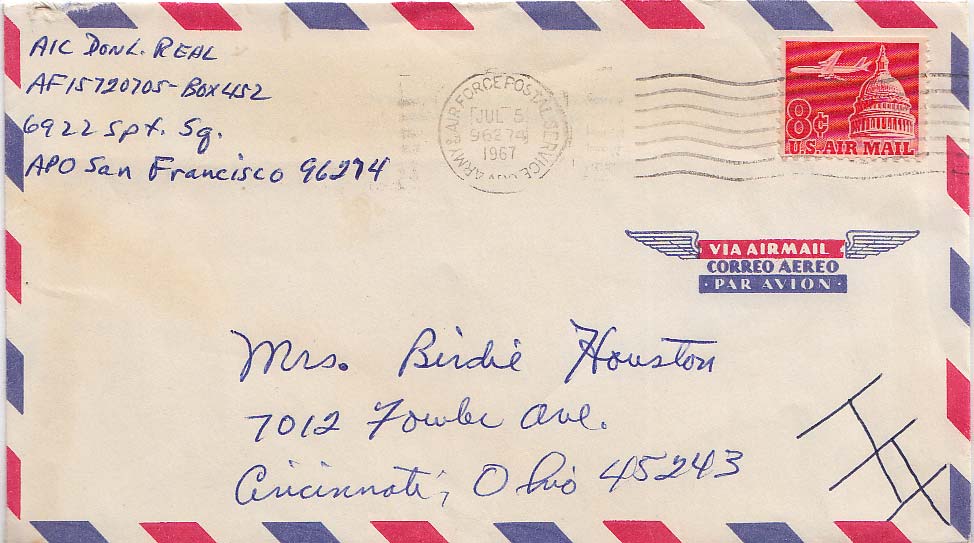 A1C Don L. Real
AF15720705-Box 452
6922 Spt. Sq.
APO San Francisco 96274
ARMY & AIR FORCE POSTAL SERVICE
JUL 5
96274
1967
8¢
U.S. AIR MAIL
VIA AIRMAIL
CORREO AEREO
· PAR AVION ·
Mrs. Birdie Houston
7012 Fowler Ave.
Cincinnati, Ohio 45243